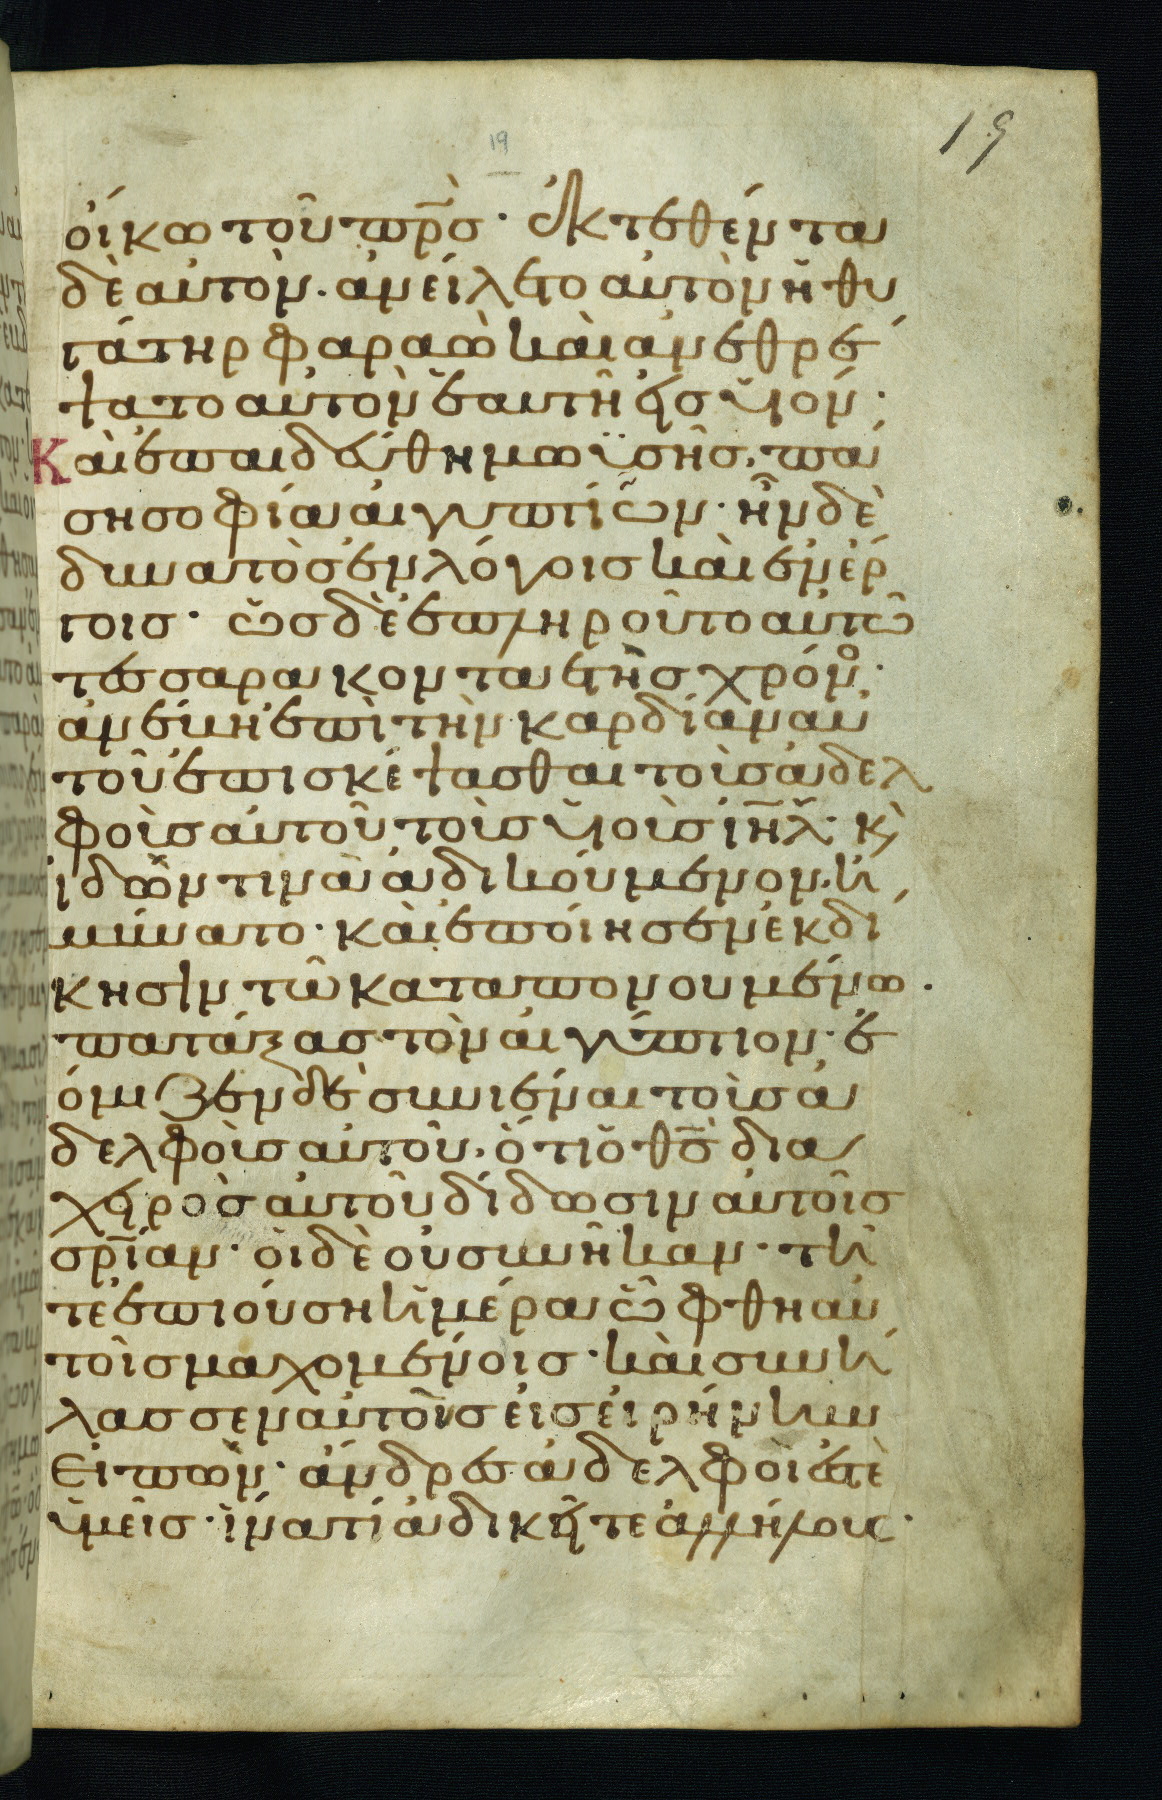 19
19
οἴκω τοῦ πρ̅σ· ἐκτεθέντα
δὲ αὐτὸν. ἀνείλετο αὐτὸν ἡ θυ
γάτηρ φαραὼ καὶ ἀνεθρέ
ψατο αὐτὸν ἑαυτῆ εἰς υἱόν·
Καὶ ἐπαιδεύθη μωϋσῆς, πά
ση σοφία αἰγυπτίων· ἦν δὲ
δυνατὸς ἐν λόγοις καὶ ἐν ἔρ
γοις· ὡς δὲ ἐπληροῦτο αὐτῶ
τεσσαρακονταετὴς χρόνο·
ἀνέβη ἐπὶ τὴν καρδίαν αὐ
τοῦ ἐπισκέψασθαι τοὺς ἀδελ
φοὺς αὐτοῦ τοὺς υἱοὺς ιη̅λ· κὶ
ἰδών τινα ἀδικούμενον. ἠ
μύνατο· καὶ ἐποίησεν ἐκδί
κησιν τῶ καταπονουμένω.
πατάξας τὸν αἰγύπτιον· ἐ
νόμιζεν δὲ συνιέναι τοὺς ἀ
δελφοὺς αὐτοῦ, ὅτι ὁ θ̅σ δια
χειρὸς αὐτοῦ δίδωσιν αὐτοῖς
σρ̅ίαν· οἱ δὲ οὐ συνῆκαν· τῆ
τε ἐπιούση ἡμέρα ὤφθη αὐ
τοῖς μαχομένοις· καὶ συνή
λασσεν αὐτοὺς εἰς εἰρήνην
Εἰπών· ἄνδρες ἀδελφοί ἐστὲ
ὑμεῖς· ἵνατί ἀδικεῖτε ἀλλήλους·